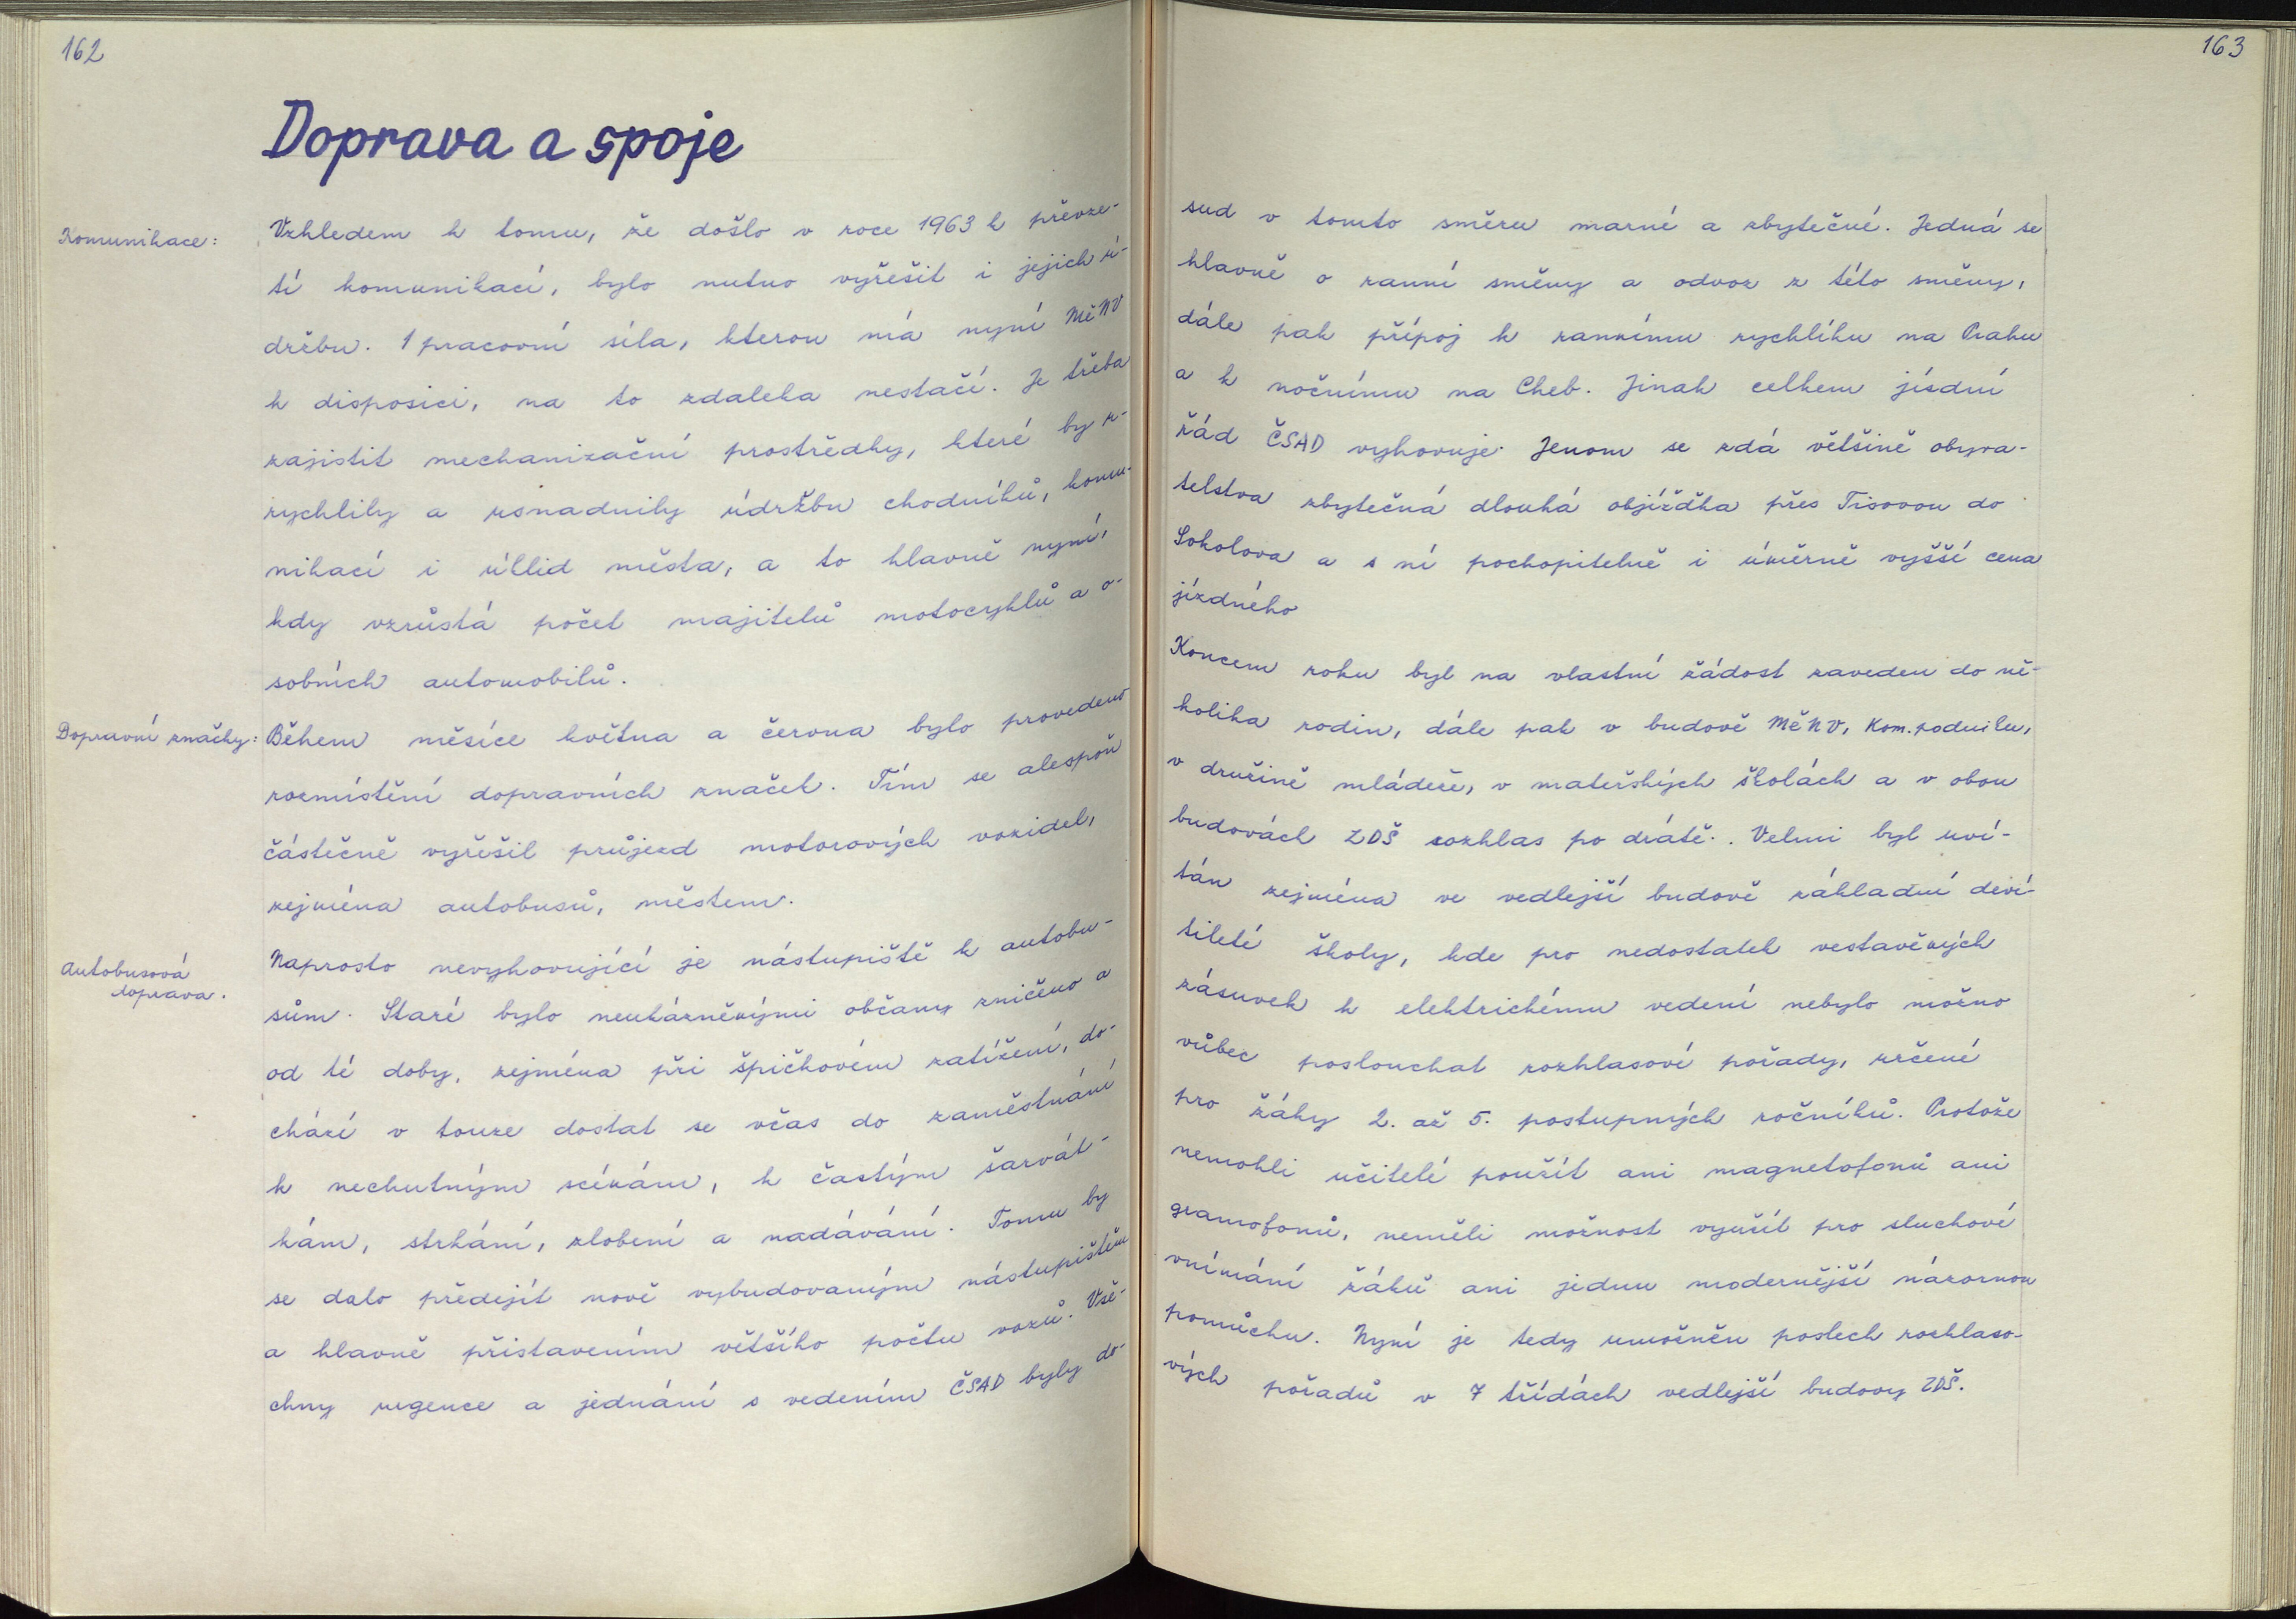 162
Doprava a spoje
Komunikace:
Vzhledem k tomu, že došlo v roce 1963 k převze-
tí komunikací, bylo nutno vyřešit i jejich ú-
držbu. 1 pracovní síla, kterou má nyní MěNV
k disposici, na to zdaleka nestačí. Je třeba
zajistit mechanizační prostředky, které by z-
rychlily a usnadnily údržbu chodníků, komu-
nikací i úklid města, a to hlavně nyní,
kdy vzrůstá počet majitelů motocyklů a o-
sobních automobilů.
Dopravní značky:
Během měsíce května a června bylo provedeno
rozmístění dopravních značek. Tím se alespoň
částečně vyřešil průjezd motorových vozidel,
zejména autobusů, městem.
Autobusová
doprava.
Naprosto nevyhovující je nástupiště k autobu-
sům. Staré bylo neukázněnými občany zničeno a
od té doby, zejména při špičkovém zatížení, do-
chází v touze dostat se včas do zaměstnání
k nechutným scénám, k častým šarvát-
kám, strkání, zlobení a nadávání. Tomu by
se dalo předejít nově vybudovaným nástupištěm
a hlavně přistavením většího počtu vozů. Vše-
chny urgence a jednání s vedením ČSAD byly do-
163
sud v tomto směru marné a zbytečné. Jedná se
hlavně o ranní směny a odvoz z této směny,
dále pak přípoj k rannímu rychlíku na Prahu
a k nočnímu na Cheb. Jinak celkem jísdní
řád ČSAD vyhovuje. Jenom se zdá většině obyva-
telstva zbytečná dlouhá objížďka přes Tisovou do
Sokolova a s ní pochopitelně i úměrně vyšší cena
jízdného
Koncem roku byl na vlastní žádost zaveden do ně-
kolika rodin, dále pak v budově MěNV, Kom. podniku,
v družině mládeže, v mateřských školách a v obou
budovách ZDŠ rozhlas po drátě. Velmi byl uví-
tán zejména ve vedlejší budově základní deví-
tileté školy, kde pro nedostatek vestavěných
zásuvek k elektrickému vedení nebylo možno
vůbec poslouchat rozhlasové pořady, určené
pro žáky 2. až 5. postupných ročníků. Protože
nemohli učitelé použít ani magnetofonů ani
gramofonů, neměli možnost využít pro sluchové
vnímání žáků ani jednu modernější názornou
pomůcku. Nyní je tedy umožněn poslech rozhlaso-
vých pořadů v 7 třídách vedlejší budovy ZDŠ.